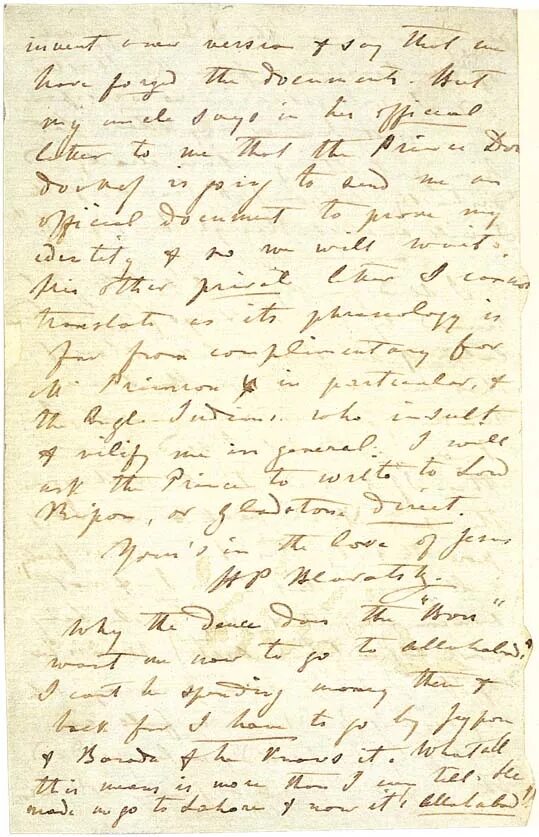 invent a new version & say that we
have forged the documents. But
my uncle says in his official
letter to me that the Prince Don
doukof is going to send me an
official document to prove my
identity & so we will wait.
His other privat letter I cannot
translate as its phraseology is
far from complimentary for
Mr Primrose in particular, &
the Anglo-Indians who insult
& vilify me in general. I will
ask the Prince to write to Lord
Ripon, or Gladstone direct.
Your's in the love of Jesus
HP Blavatsky.
Why the deuce does the "Boss"
want me now to go to Allahabad?
I cant be spending money there &
back for I have to go by Jeypor
& Baroda & he knows it. What all
this means is more than I can tell. He
made me go to Lahore & now its Allahabad!!